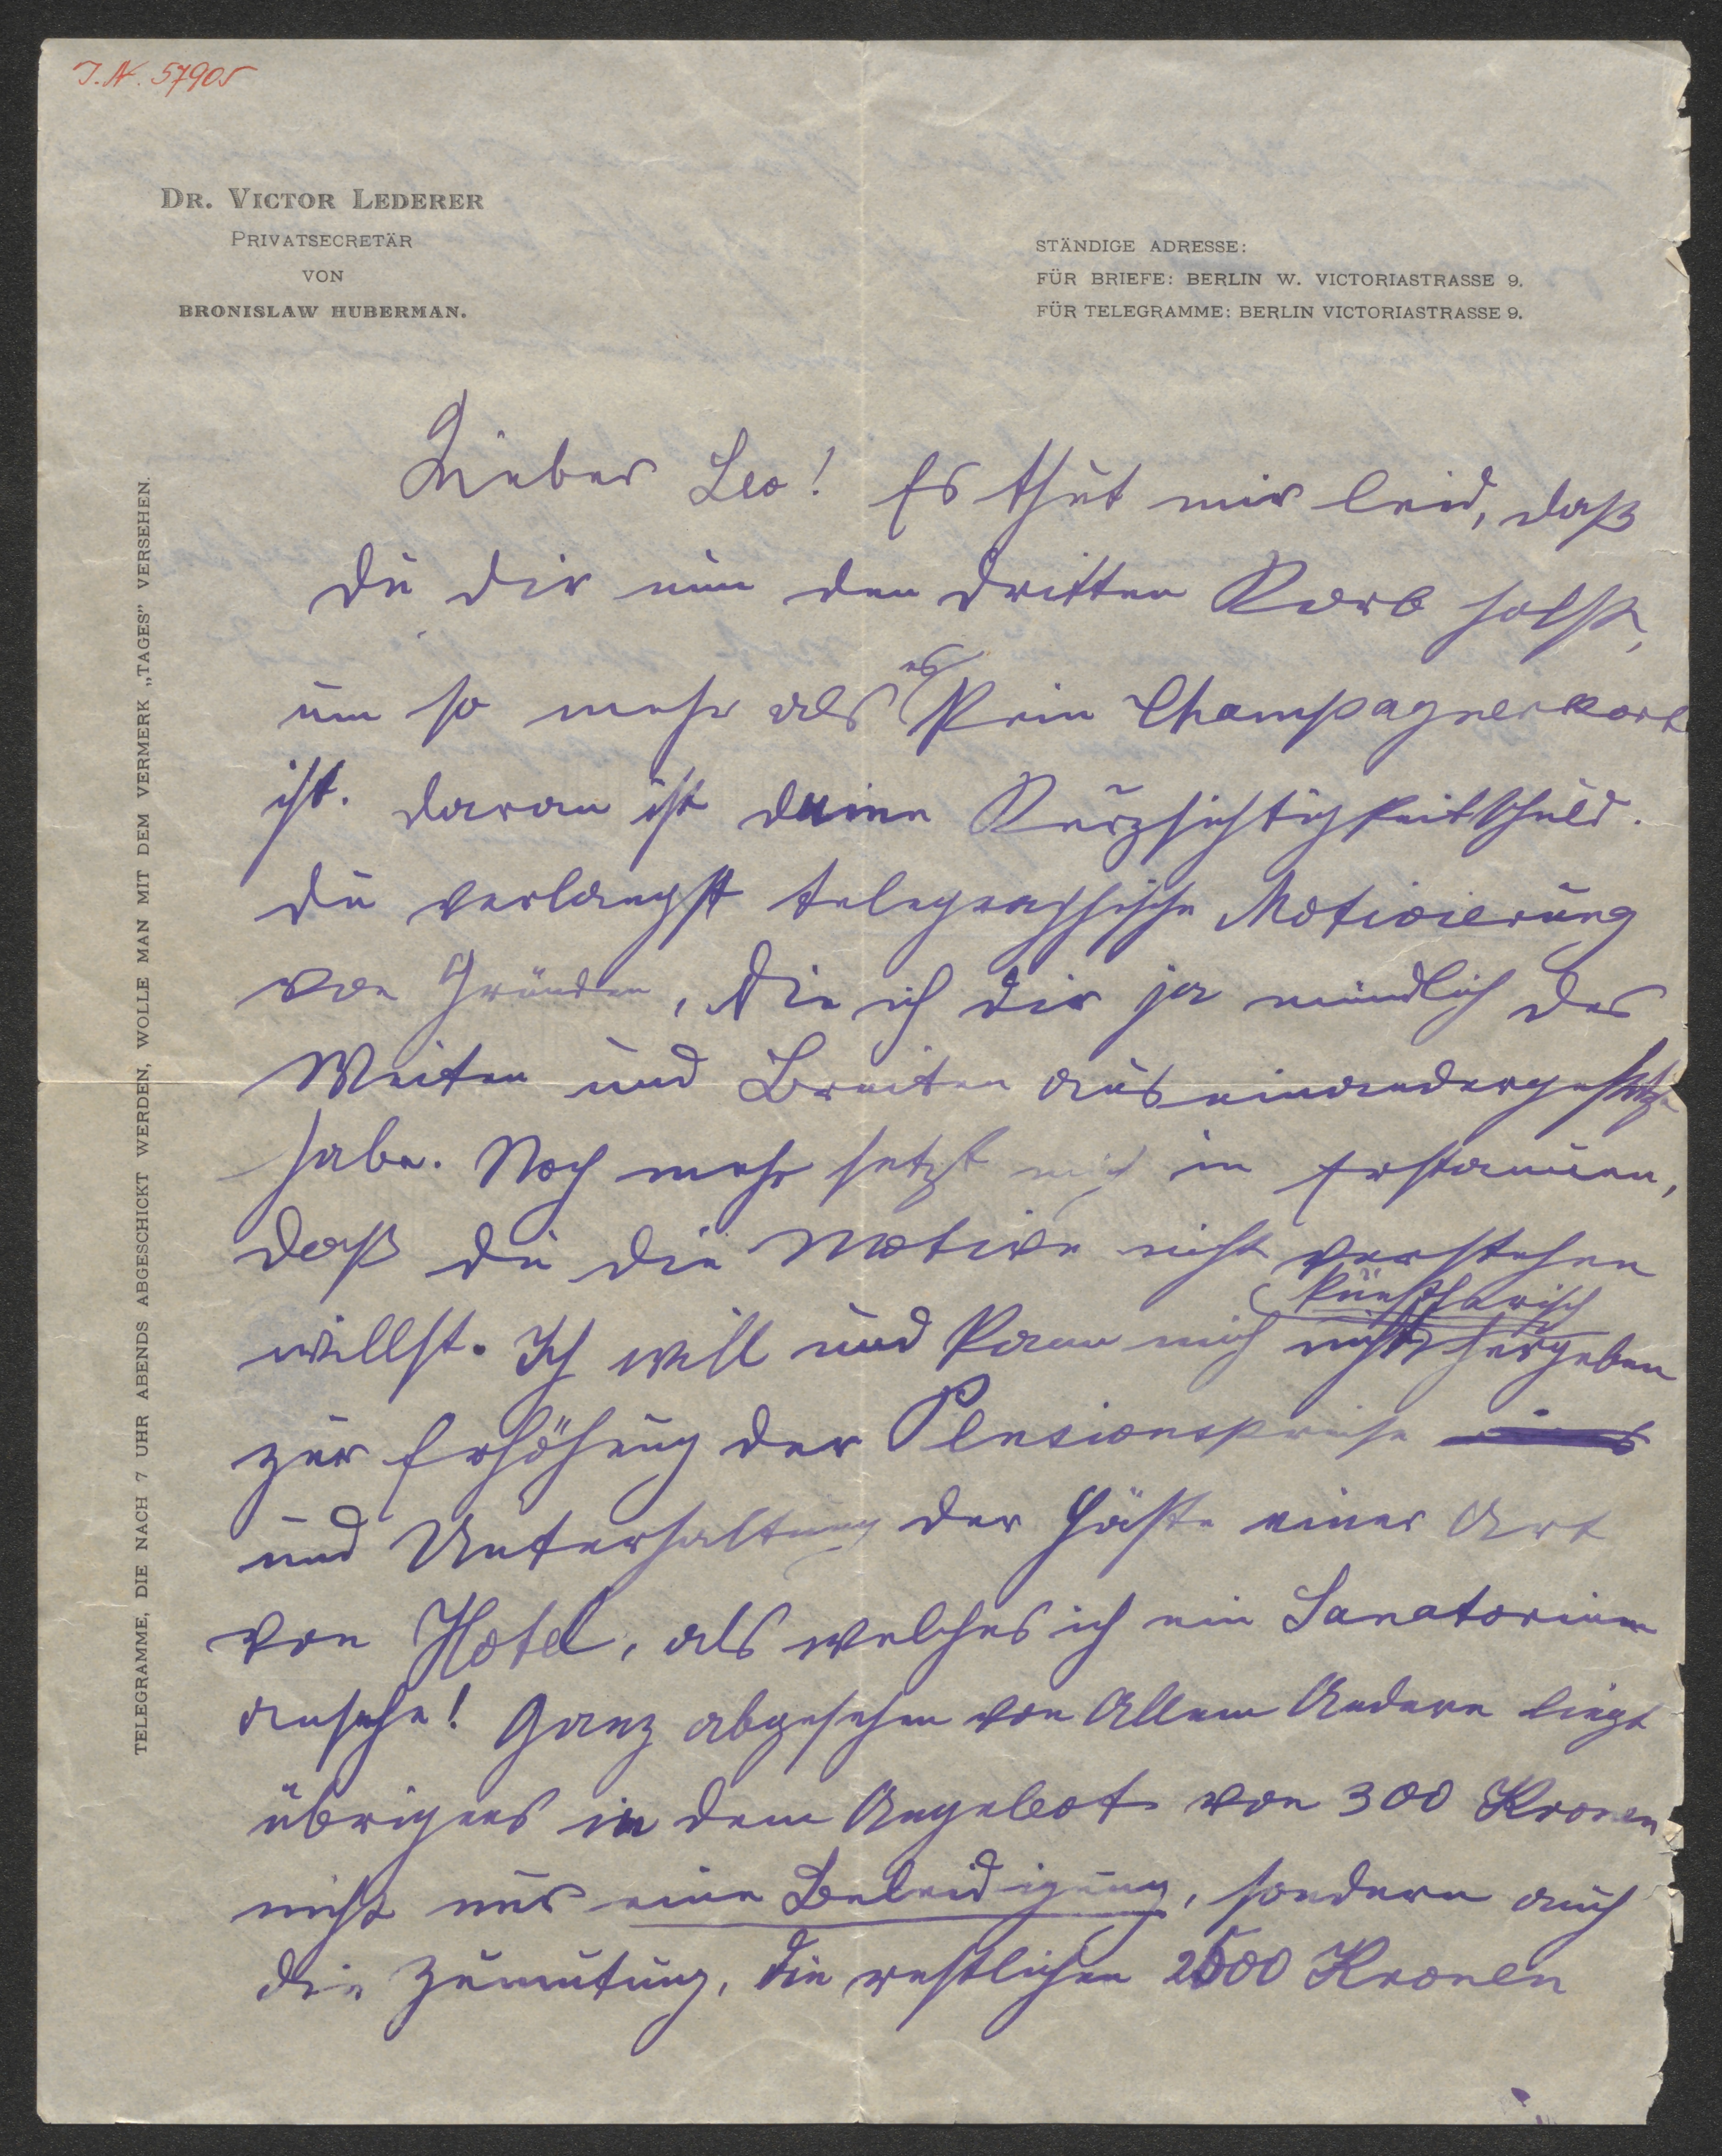 J. N. 57905
DR. VICTOR LEDERER
PRIVATSECRETÄR
VON
BRONISLAW HUBERMAN.
STÄNDIGE ADRESSE:
FÜR BRIEFE: BERLIN W. VICTORIASTRASSE 9.
FÜR TELEGRAMME: BERLIN VICTORIASTRASSE 9.
TELEGRAMME, DIE NACH 7 UHR ABENDS ABGESCHICKT WERDEN, WOLLE MAN MIT DEM VERMERK „TAGES” VERSEHEN.
Lieber Leo! Es thut mir leid, daß
du dir nun den dritten Korb holst,
um so mehr als es kein Champagnerkorb
ist. Daran ist deine Kurzsichtigkeit schuld.
Du verlangst telegraphische Motivierung
von Gründen, die ich dir ja mündlich des
Weiten und Breiten auseinandergesetzt
habe. Noch mehr setzt mich in Erstaunen,
daß du die Motive nicht verstehen
willst. Ich will und kann mich nicht künstlerisch hergeben
zur Erhöhung der Pensionspreise
und Unterhaltung der Gäste einer Art
von Hotel, als welches ich ein Sanatorium
ansehe! Ganz abgesehen von Allem Andern liegt
übrigens in dem Angebot von 300 Kronen
nicht nur eine Beleidigung, sondern auch
die Zumutung, die restlichen 2500 Kronen